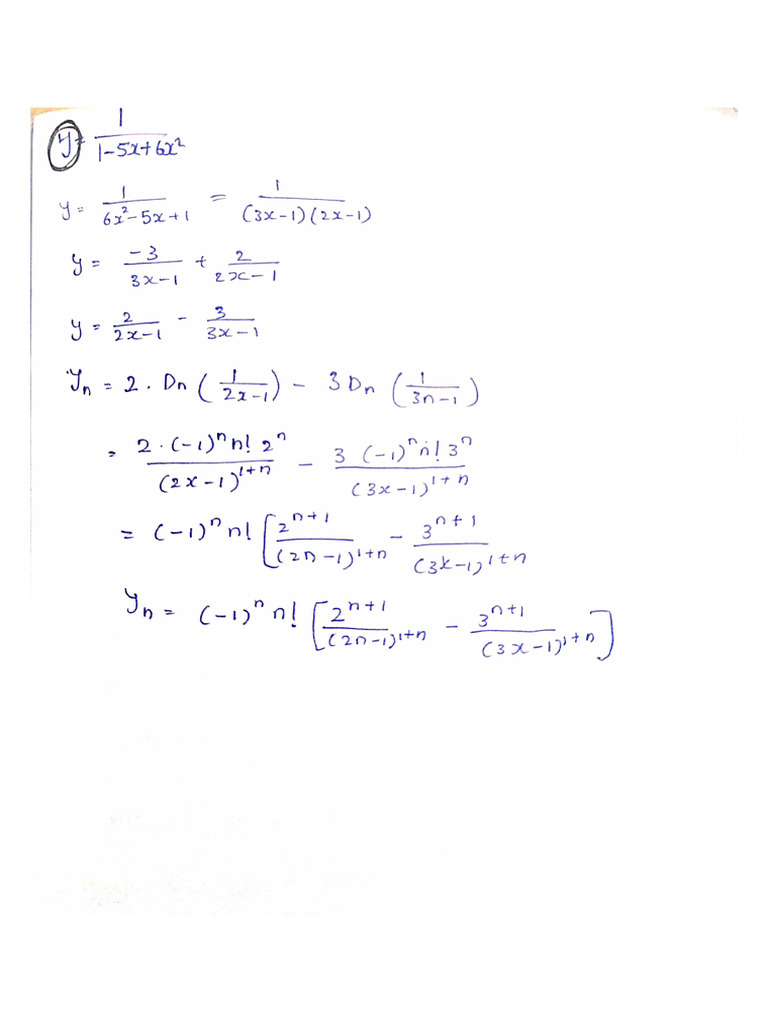 y = 1/(1-5x+6x²)
y = 1/(6x²-5x+1) = 1/((3x-1)(2x-1))
y = -3/(3x-1) + 2/(2x-1)
y = 2/(2x-1) - 3/(3x-1)
yₙ = 2 . Dn (1/(2x-1)) - 3 Dn (1/(3n-1))
= 2.(-1)ⁿ n! 2ⁿ/(2x-1)¹⁺ⁿ - 3 (-1)ⁿ n! 3ⁿ/(3x-1)¹⁺ⁿ
= (-1)ⁿ n! [2ⁿ⁺¹/(2n-1)¹⁺ⁿ - 3ⁿ⁺¹/(3x-1)¹⁺ⁿ
yₙ = (-1)ⁿ n! [2ⁿ⁺¹/(2n-1)¹⁺ⁿ - 3ⁿ⁺¹/(3x-1)¹⁺ⁿ]